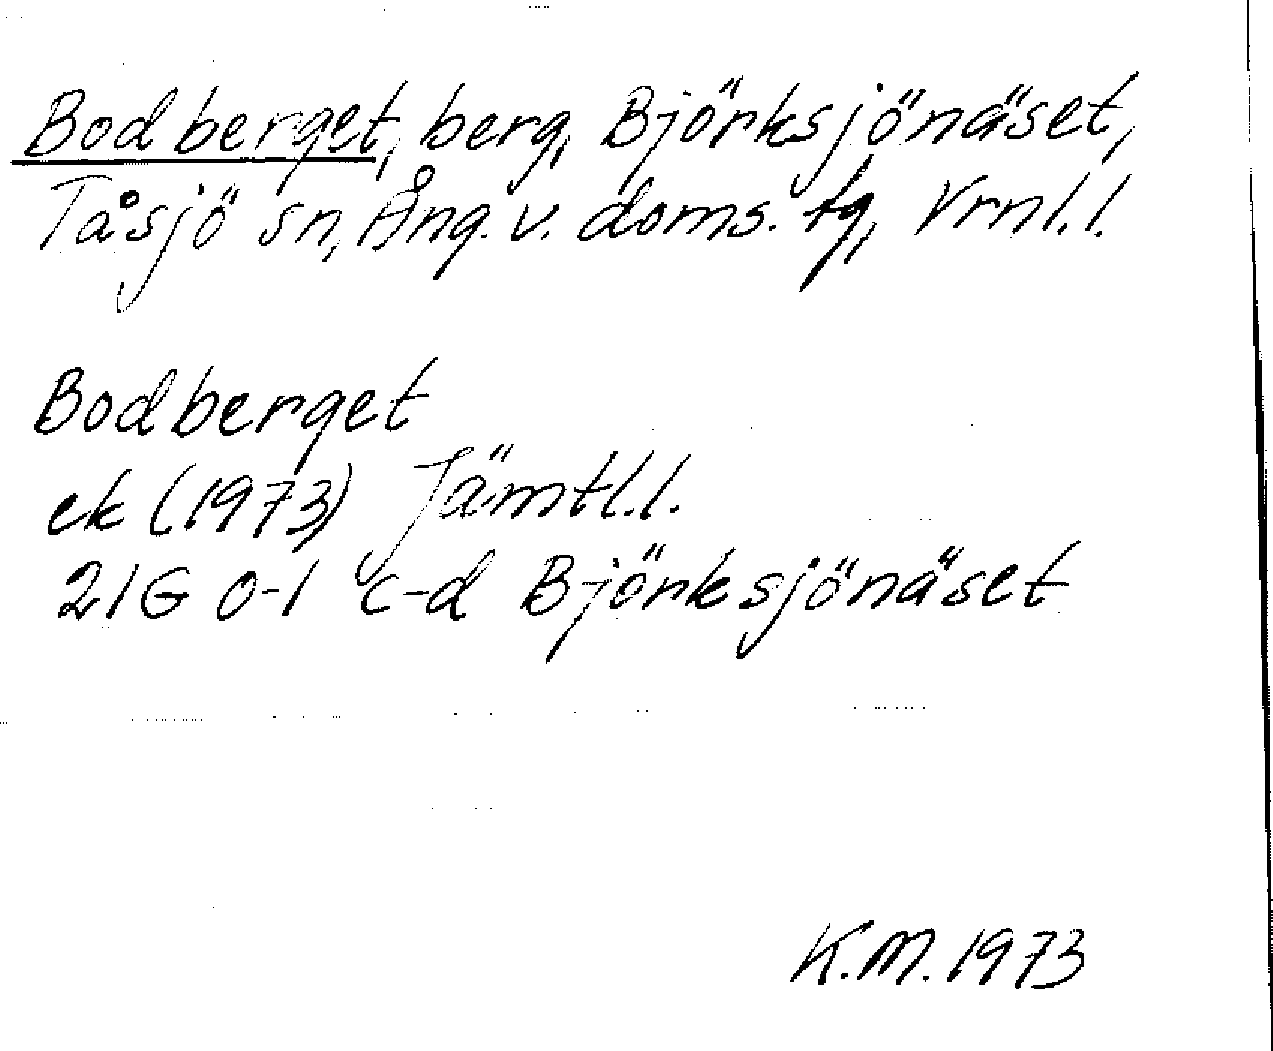 Bodberget, berg, Björksjönäset,
Tåsjö sn, Ång. v. doms. tg, Vrnl. l.
Bodberget
ek (1973) Jämtl. l.
21G 0-1 c-d Björksjönäset
K.M. 1973